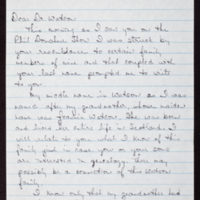 Dear Dr Watson
This morning as I saw you on the
Phil Donahue Show I was struck by
your resemblance to certain family
members of mine and that coupled with
your last name prompted me to write
to you.
My middle name is Watson as I was
named after my grandmother, whose maiden
name was Watson. She was born
and lived her entire life in Scotland. I
will relate to you what I know of the
family just in case you or your sons
are interested in genealogy. There may
possibly be a connection of this Watson
family.
I know only that my grandmother had